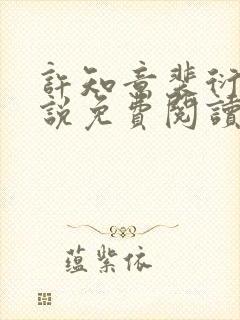 許知意裴衍
說免費閱讀
蘊紫依